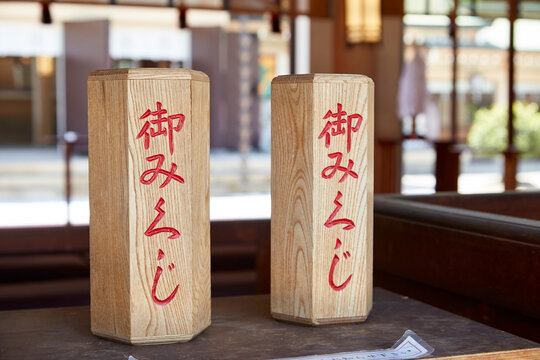 御みくじ
御みくじ